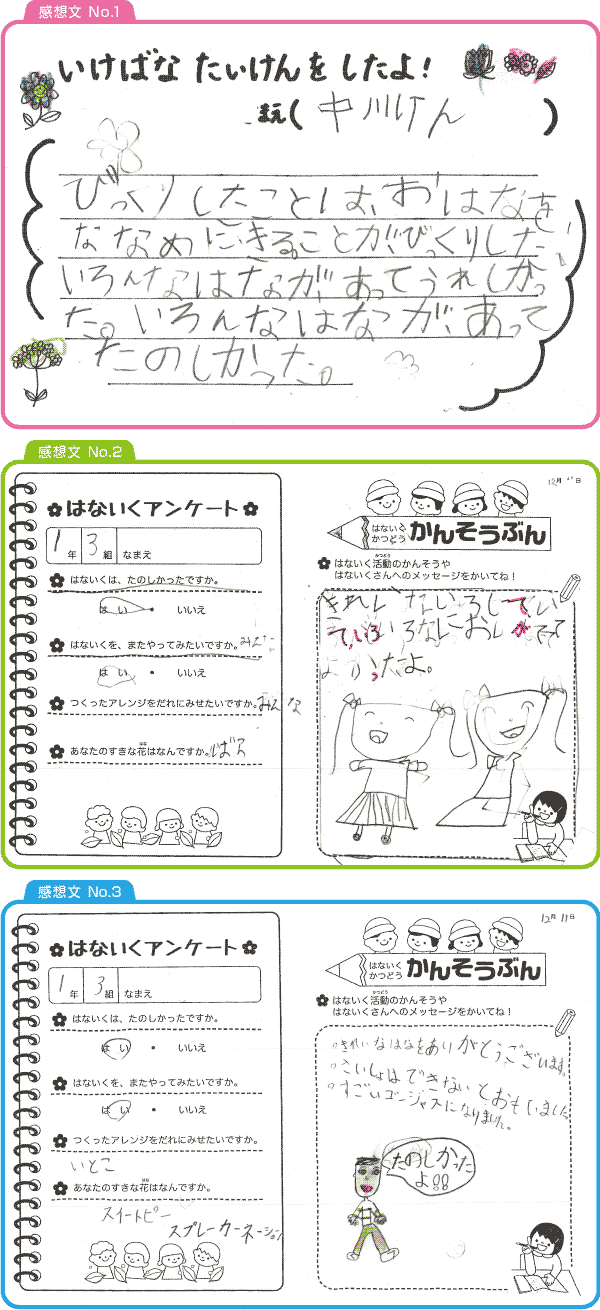 感想文 No.1
いけばな たいけんを したよ!
まえ( 中川けん )
びっくりしたことは、おはなを
ななめにきることが、びっくりした!
いろんなはなが、あってうれしかっ
た。いろんなはなが、あって
たのしかった。
感想文 No.2
はないくアンケート
1年 3組 なまえ
はないくは、たのしかったですか。
はい ・ いいえ
はないくを、またやってみたいですか。みんな
はい ・ いいえ
つくったアレンジをだれにみせたいですか。みんな
あなたのすきな花はなんですか。ばら
はな
12月 日
はないく
かつどう
かんそうぶん
かつどう
はないく活動のかんそうや
はないくさんへのメッセージをかいてね!
きれいないろしてい
て、いろいろなにおいがでて
よかったよ。
感想文 No.3
はないくアンケート
1年 3組 なまえ
はないくは、たのしかったですか。
はい ・ いいえ
はないくを、またやってみたいですか。
はい ・ いいえ
つくったアレンジをだれにみせたいですか。
いとこ
あなたのすきな花はなんですか。
はな
スイートピー
スプレーカーネーション
12月 11日
はないく
かつどう
かんそうぶん
かつどう
はないく活動のかんそうや
はないくさんへのメッセージをかいてね!
。きれいなはなをありがとうございます。
。さいしょはできないとおもいました
。すごいゴージャスになりません。
たのしかった
よ!!